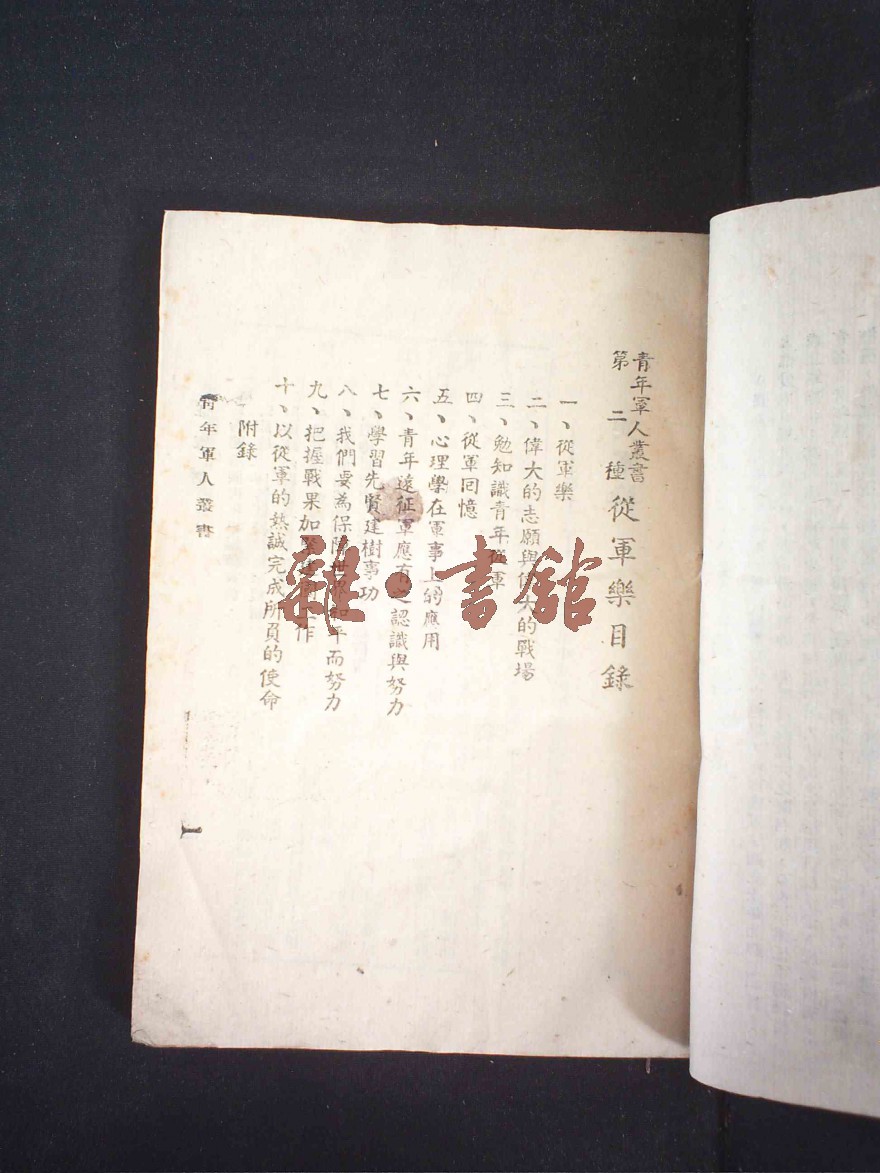 青年軍人叢書
第二種
從軍樂目錄
一、從軍樂
二、偉大的志願與偉大的戰場
三、勉知識青年從軍
四、從軍回憶
五、心理學在軍事上的應用
六、青年遠征軍應有之認識與努力
七、學習先賢建樹事功
八、我們要為保障世界和平而努力
九、把握戰果加緊建國工作
十、以從軍的熱誠完成所負的使命
附錄
青年軍人叢書
一
雜·書館